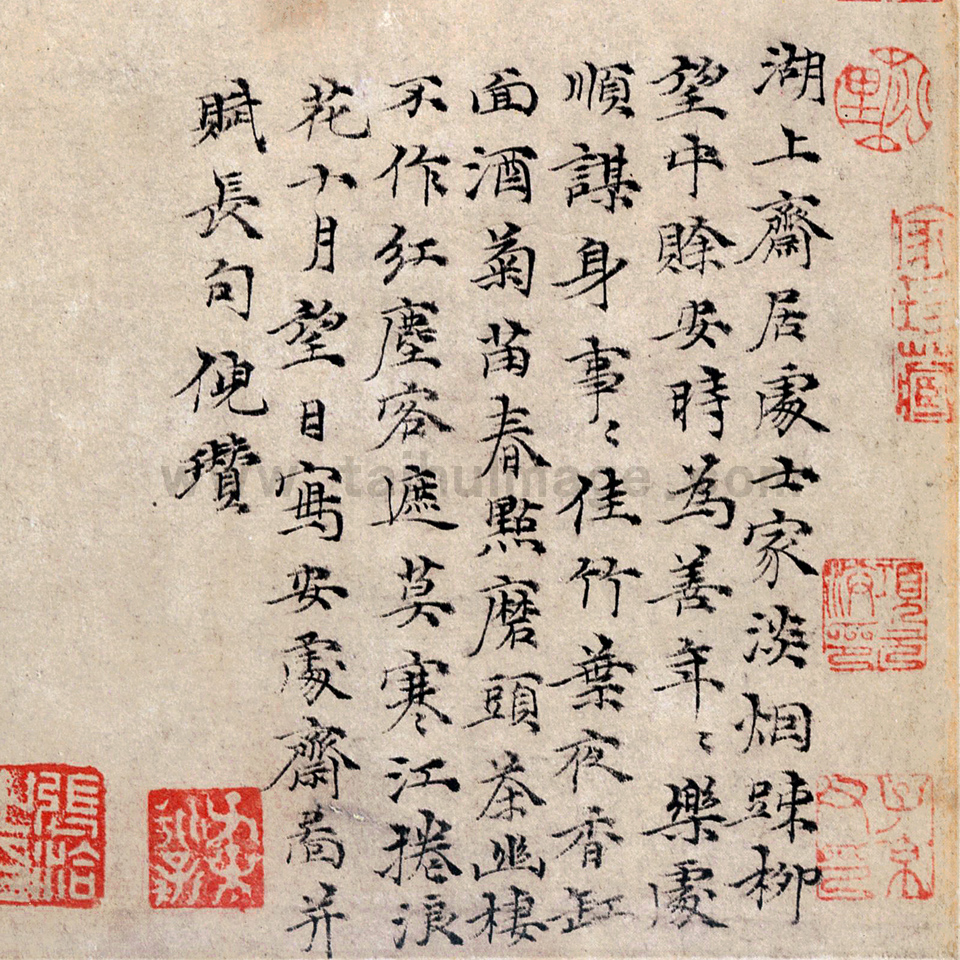 湖上齋居處士家淡烟踈柳
望中賖安時為善年〻樂處
順謀身事〻佳竹葉夜香缸
面酒菊苗春點磨頭茶幽棲
不作紅塵客遮莫寒〻江捲浪
花十月望日寫安處齋啚并
賦長句倪瓚
www.taihuimage.com